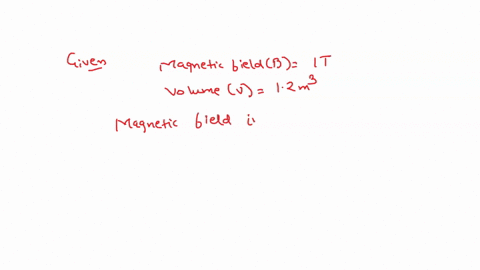 Given Magnetic field (B) = 1T
Volume (V) = 1.2m³
Magnetic field i